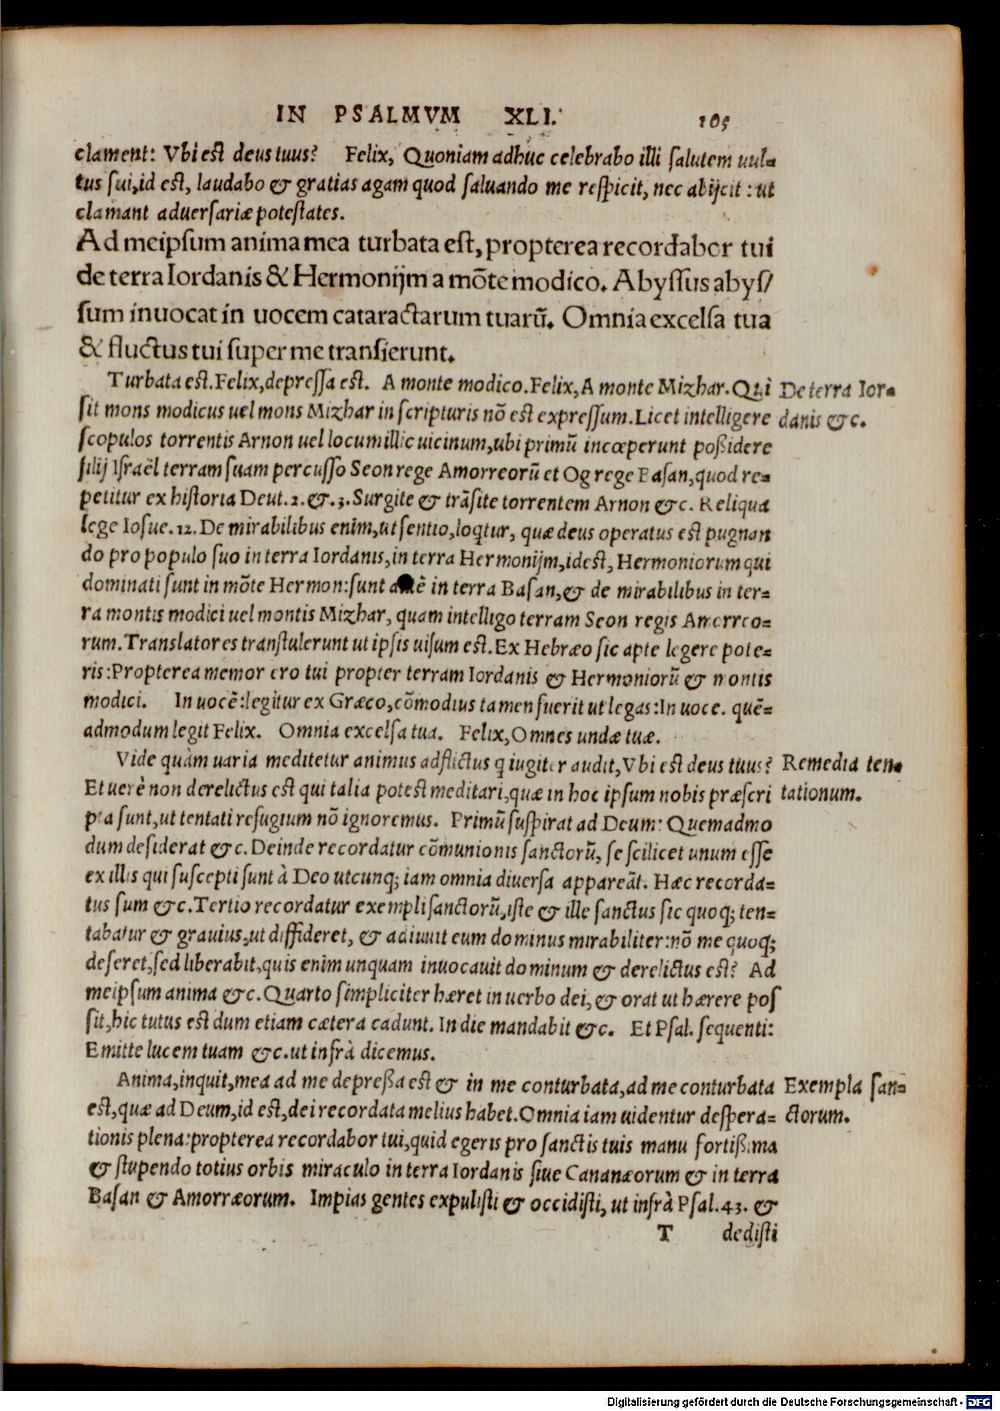 IN PSALMVM XLI. 105
clament: Vbi est deus tuus? Felix, Quoniam adhuc celebrabo illi salutem uul-
tus sui, id est, laudabo & gratias agam quod saluando me respicit, nec abijcit: ut
clamant aduersariæ potestates.
Ad meipsum anima mea turbata est, propterea recordabor tui
de terra Iordanis & Hermonijm a mõte modico. Abyssus abys/
sum inuocat in uocem cataractarum tuarũ. Omnia excelsa tua
& fluctus tui super me transierunt.
Turbata est. Felix, depressa est. A monte modico. Felix, A monte Mizhar. Qui
De terra Ior-
sit mons modicus uel mons Mizhar in scripturis nõ est expressum. Licet intelligere
danis &c.
scopulos torrentis Arnon uel locum illic uicinum, ubi primũ incœperunt poßidere
filij Israël terram suam percusso Seon rege Amorreorũ et Og rege Basan, quod re-
petitur ex historia Deut. 2. &. 3. Surgite & trãsite torrentem Arnon &c. Reliqua
lege Iosue. 12. De mirabilibus enim, ut sentio, loqtur, quæ deus operatus est pugnan
do pro populo suo in terra Iordanis, in terra Hermonijm, idest, Hermoniorum qui
dominati sunt in mõte Hermon: sunt in terra Basan, & de mirabilibus in ter-
ra montis modici uel montis Mizhar, quam intelligo terram Seon regis Amorreo-
rum. Translatores transtulerunt ut ipsis uisum est. Ex Hebræo sic apte legere pote-
ris: Propterea memor ero tui propter terram Iordanis & Hermoniorũ & montis
modici. In uocẽ: legitur ex Græco, cõmodius tamen fuerit ut legas: In uoce. quẽ-
admodum legit Felix. Omnia excelsa tua. Felix, Omnes undæ tuæ.
Vide quàm uaria meditetur animus adflictus q iugiter audit, Vbi est deus tuus?
Remedia ten-
Et uerè non derelictus est qui talia potest meditari, quæ in hoc ipsum nobis præscri
tationum.
pta sunt, ut tentati refugium nõ ignoremus. Primũ suspirat ad Deum: Quemadmo
dum desiderat &c. Deinde recordatur cõmunionis sanctorũ, se scilicet unum esse
ex illis qui suscepti sunt à Deo utcunq; iam omnia diuersa appareãt. Hæc recorda-
tus sum &c. Tertio recordatur exempli sanctorũ, iste & ille sanctus sic quoq; ten-
tabatur & grauius, ut diffideret, & adiuuit eum dominus mirabiliter: nõ me quoq;
deseret, sed liberabit, quis enim unquam inuocauit dominum & derelictus est? Ad
meipsum anima &c. Quarto simpliciter hæret in uerbo dei, & orat ut hærere pos
sit, hic tutus est dum etiam cætera cadunt. In die mandabit &c. Et Psal. sequenti:
Emitte lucem tuam &c. ut infrà dicemus.
Anima, inquit, mea ad me depreßa est & in me conturbata, ad me conturbata
Exempla san-
est, quæ ad Deum, id est, dei recordata melius habet. Omnia iam uidentur despera-
ctorum.
tionis plena: propterea recordabor tui, quid egeris pro sanctis tuis manu fortißima
& stupendo totius orbis miraculo in terra Iordanis siue Cananæorum & in terra
Basan & Amorræorum. Impias gentes expulisti & occidisti, ut infrà Psal. 43. &
T dedisti
Digitalisierung gefördert durch die Deutsche Forschungsgemeinschaft - DFG